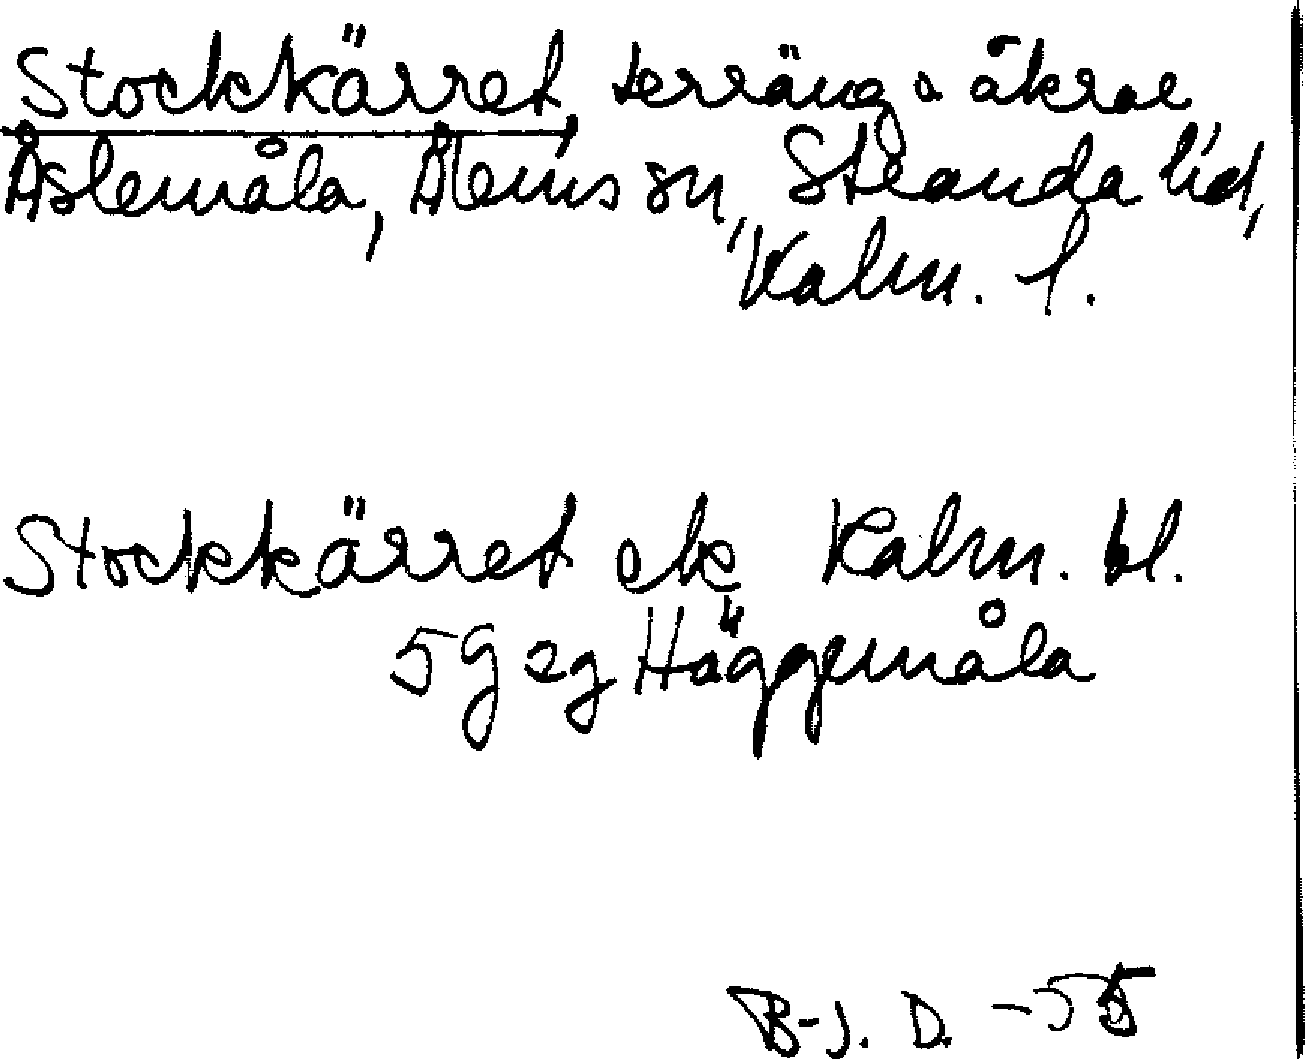 Stockkärret, terräng o åkrar
Åslemåla, Ålems sn, Stranda hd,
Kalm. l.
Stockkärret ek Kalm. bl.
5 g Häggemåla
B-J. D. -55